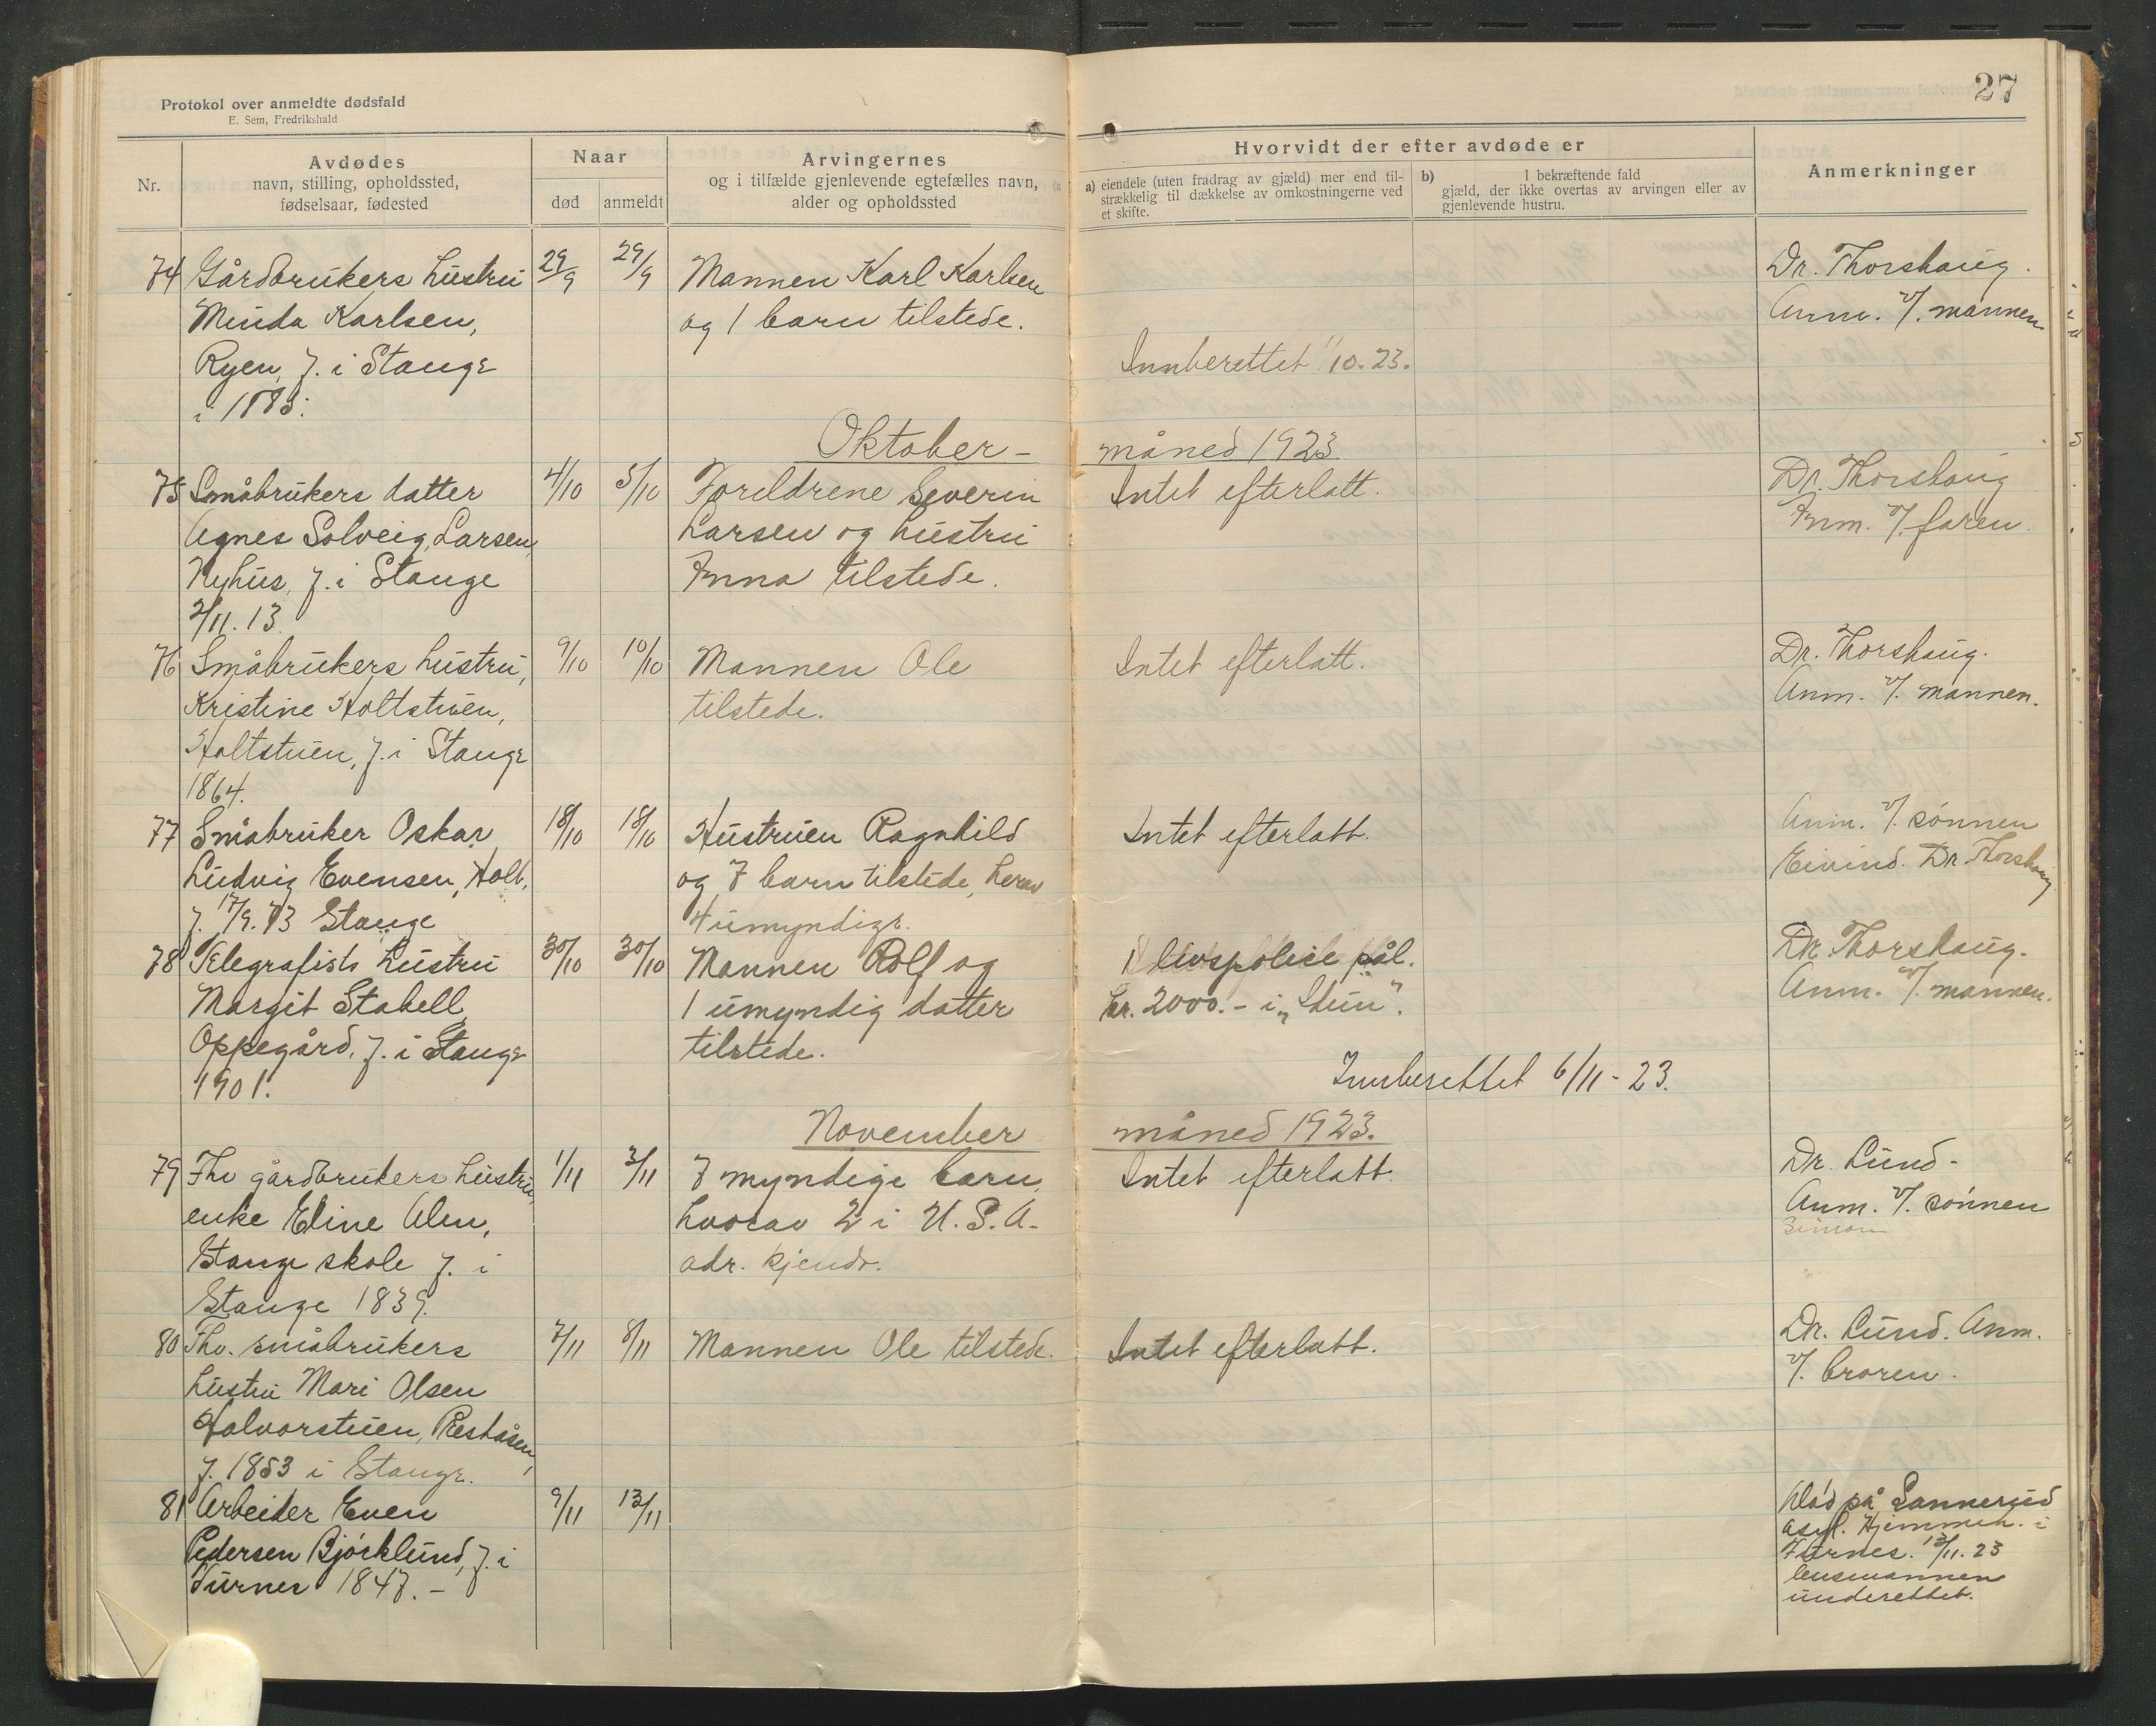 27
Protokol over anmeldte dødsfald
E. Sem, Fredrikshald
Nr.
Avdødes
navn, stilling, opholdssted,
fødselsaar, fødested
Naar
død
anmeldt
Arvingernes
og i tilfælde gjenlevende egtefælles navn,
alder og opholdssted
Hvorvidt der efter avdøde er
a) eiendele (uten fradrag av gjæld) mer end til-
strækkelig til dækkelse av omkostningerne ved
et skifte.
b) I bekræftende fald
gjæld, der ikke overtas av arvingen eller av
gjenlevende hustru.
Anmerkninger
74 Gårdbrukers hustru
Minda Karlsen,
Ryen, f. i Stange
29/9 29/9
Mannen Karl Karlsen
og 1 barn tilstede.
Innberettet 1/10. 23.
Dr. Thorshaug.
Anm. v/. mannen
Oktober - måned 1923
75 Småbrukers datter
Agnes Solveig Larsen,
Nyhus, f. i Stange
2/11. 13
4/10 5/10
Foreldrene Severin
Larsen og hustru
Anna tilstede.
Intet efterlatt.
Dr. Thorshaug
Anm. v/. faren.
76 Småbrukers hustru,
Kristine Holtstuen,
Holtstuen, f. i Stange
1864.
9/10 10/10
Mannen Ole
tilstede.
Intet efterlatt.
Dr. Thorshaug.
Anm. v/. mannen.
77 Småbruker Oskar
Ludvig Evensen, Holt,
f. 17/9. 73 Stange
18/10 18/10
Hustruen Ragnhild
og 7 barn tilstede, herav
4 umyndige.
Intet efterlatt.
Anm. v/. sønnen
Eivind. Dr. Thorshaug
78 Telegrafists hustru
Margit Stabell
Oppegård, f. i Stange
1901.
30/10 30/10
Mannen Rolf og
1 umyndig datter
tilstede.
1 livspolice pål.
kr. 2000.- i „Idun".
Dr. Thorshaug.
Anm. v/. mannen.
Innberettet 6/11 - 23.
November måned 1923.
79 Fhv gårdbrukers hustru,
enke Eline Alm,
Stange skole f. i
Stange 1839.
1/11 2/11
7 myndige barn,
hvorav 2 i U. S. A.
adr. kjendt.
Intet efterlatt.
Dr. Lund -
Anm. v/. sønnen
Simon
80 Fhv. småbrukers
hustru Mari Olsen
Halvorstuen, Preståsen,
f. 1853 i Stange.
7/11 8/11
Mannen Ole tilstede.
Intet efterlatt.
Dr. Lund. Anm.
v/. broren.
81 Arbeider Even
Pedersen Bjørklund, f. i
Furnes 1847. -
9/11 13/11
død på Sannerud
asyl. Hjemmeh. i
Furnes. 13/11. 23
lensmannen
underettet.